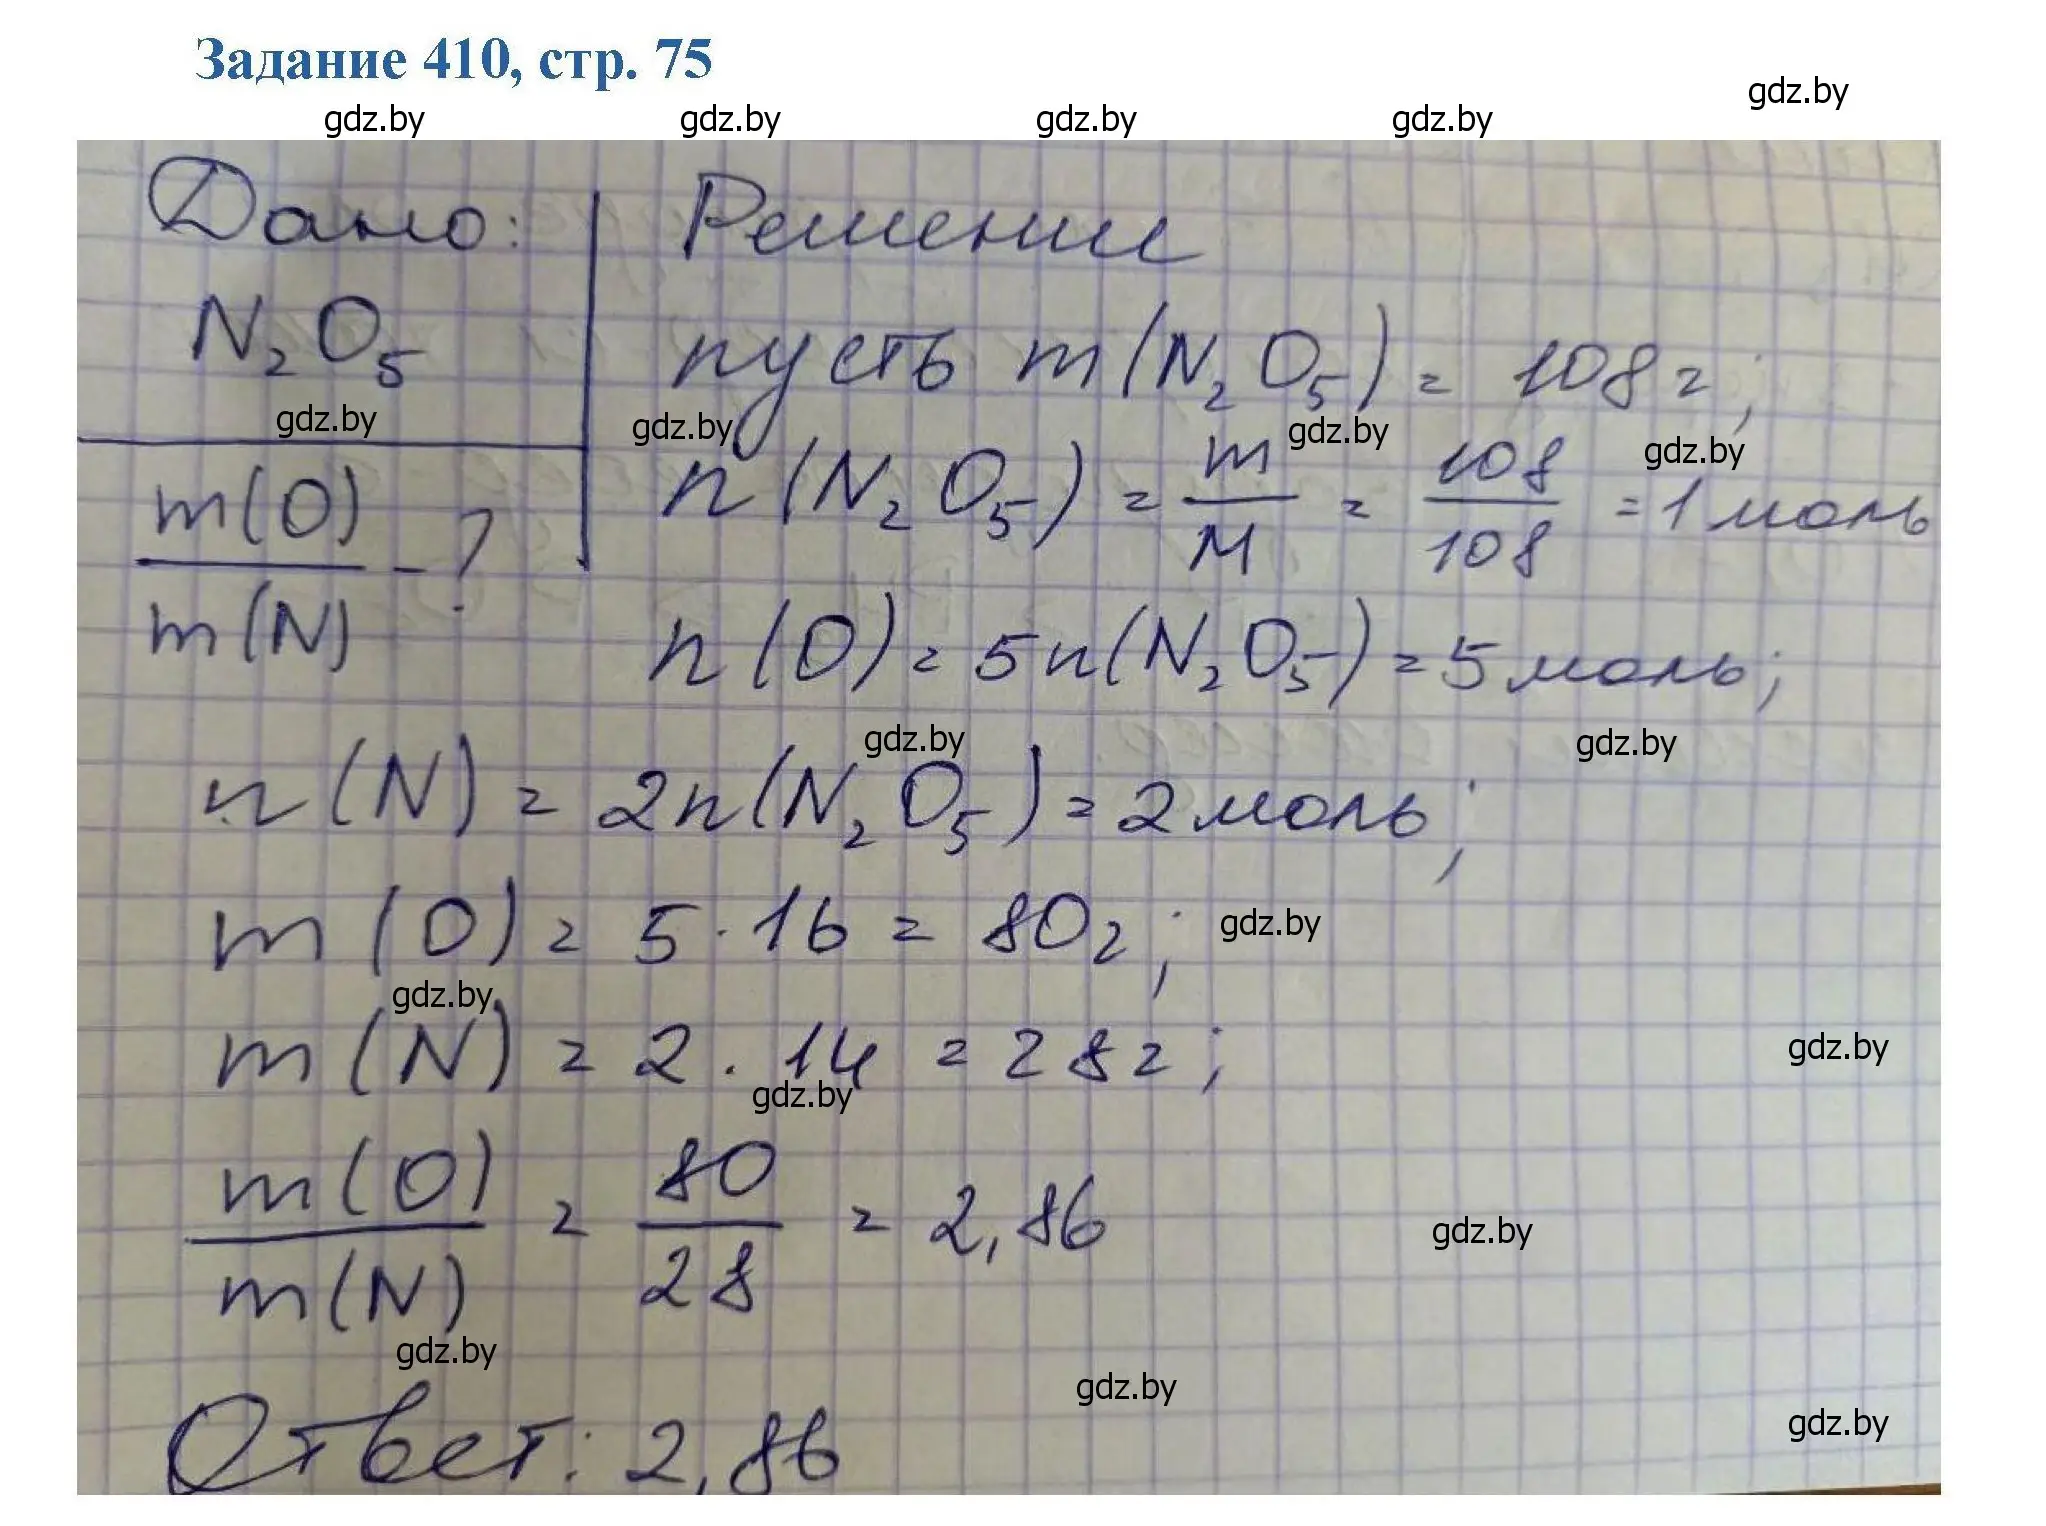 Задание 410, стр. 75
gdz.by
gdz.by gdz.by gdz.by gdz.by
Дано: Решение
N₂O₅ пусть m(N₂O₅) = 108 г;
gdz.by gdz.by gdz.by gdz.by
m(O)/m(N) - ? n(N₂O₅) = m/M = 108/108 = 1 моль
n(O) = 5n(N₂O₅) = 5 моль;
gdz.by gdz.by
n(N) = 2n(N₂O₅) = 2 моль;
m(O) = 5 · 16 = 80 г; gdz.by
gdz.by
m(N) = 2 · 14 = 28 г; gdz.by
gdz.by
m(O)/m(N) = 80/28 = 2,86 gdz.by
gdz.by
gdz.by
gdz.by
Ответ: 2,86